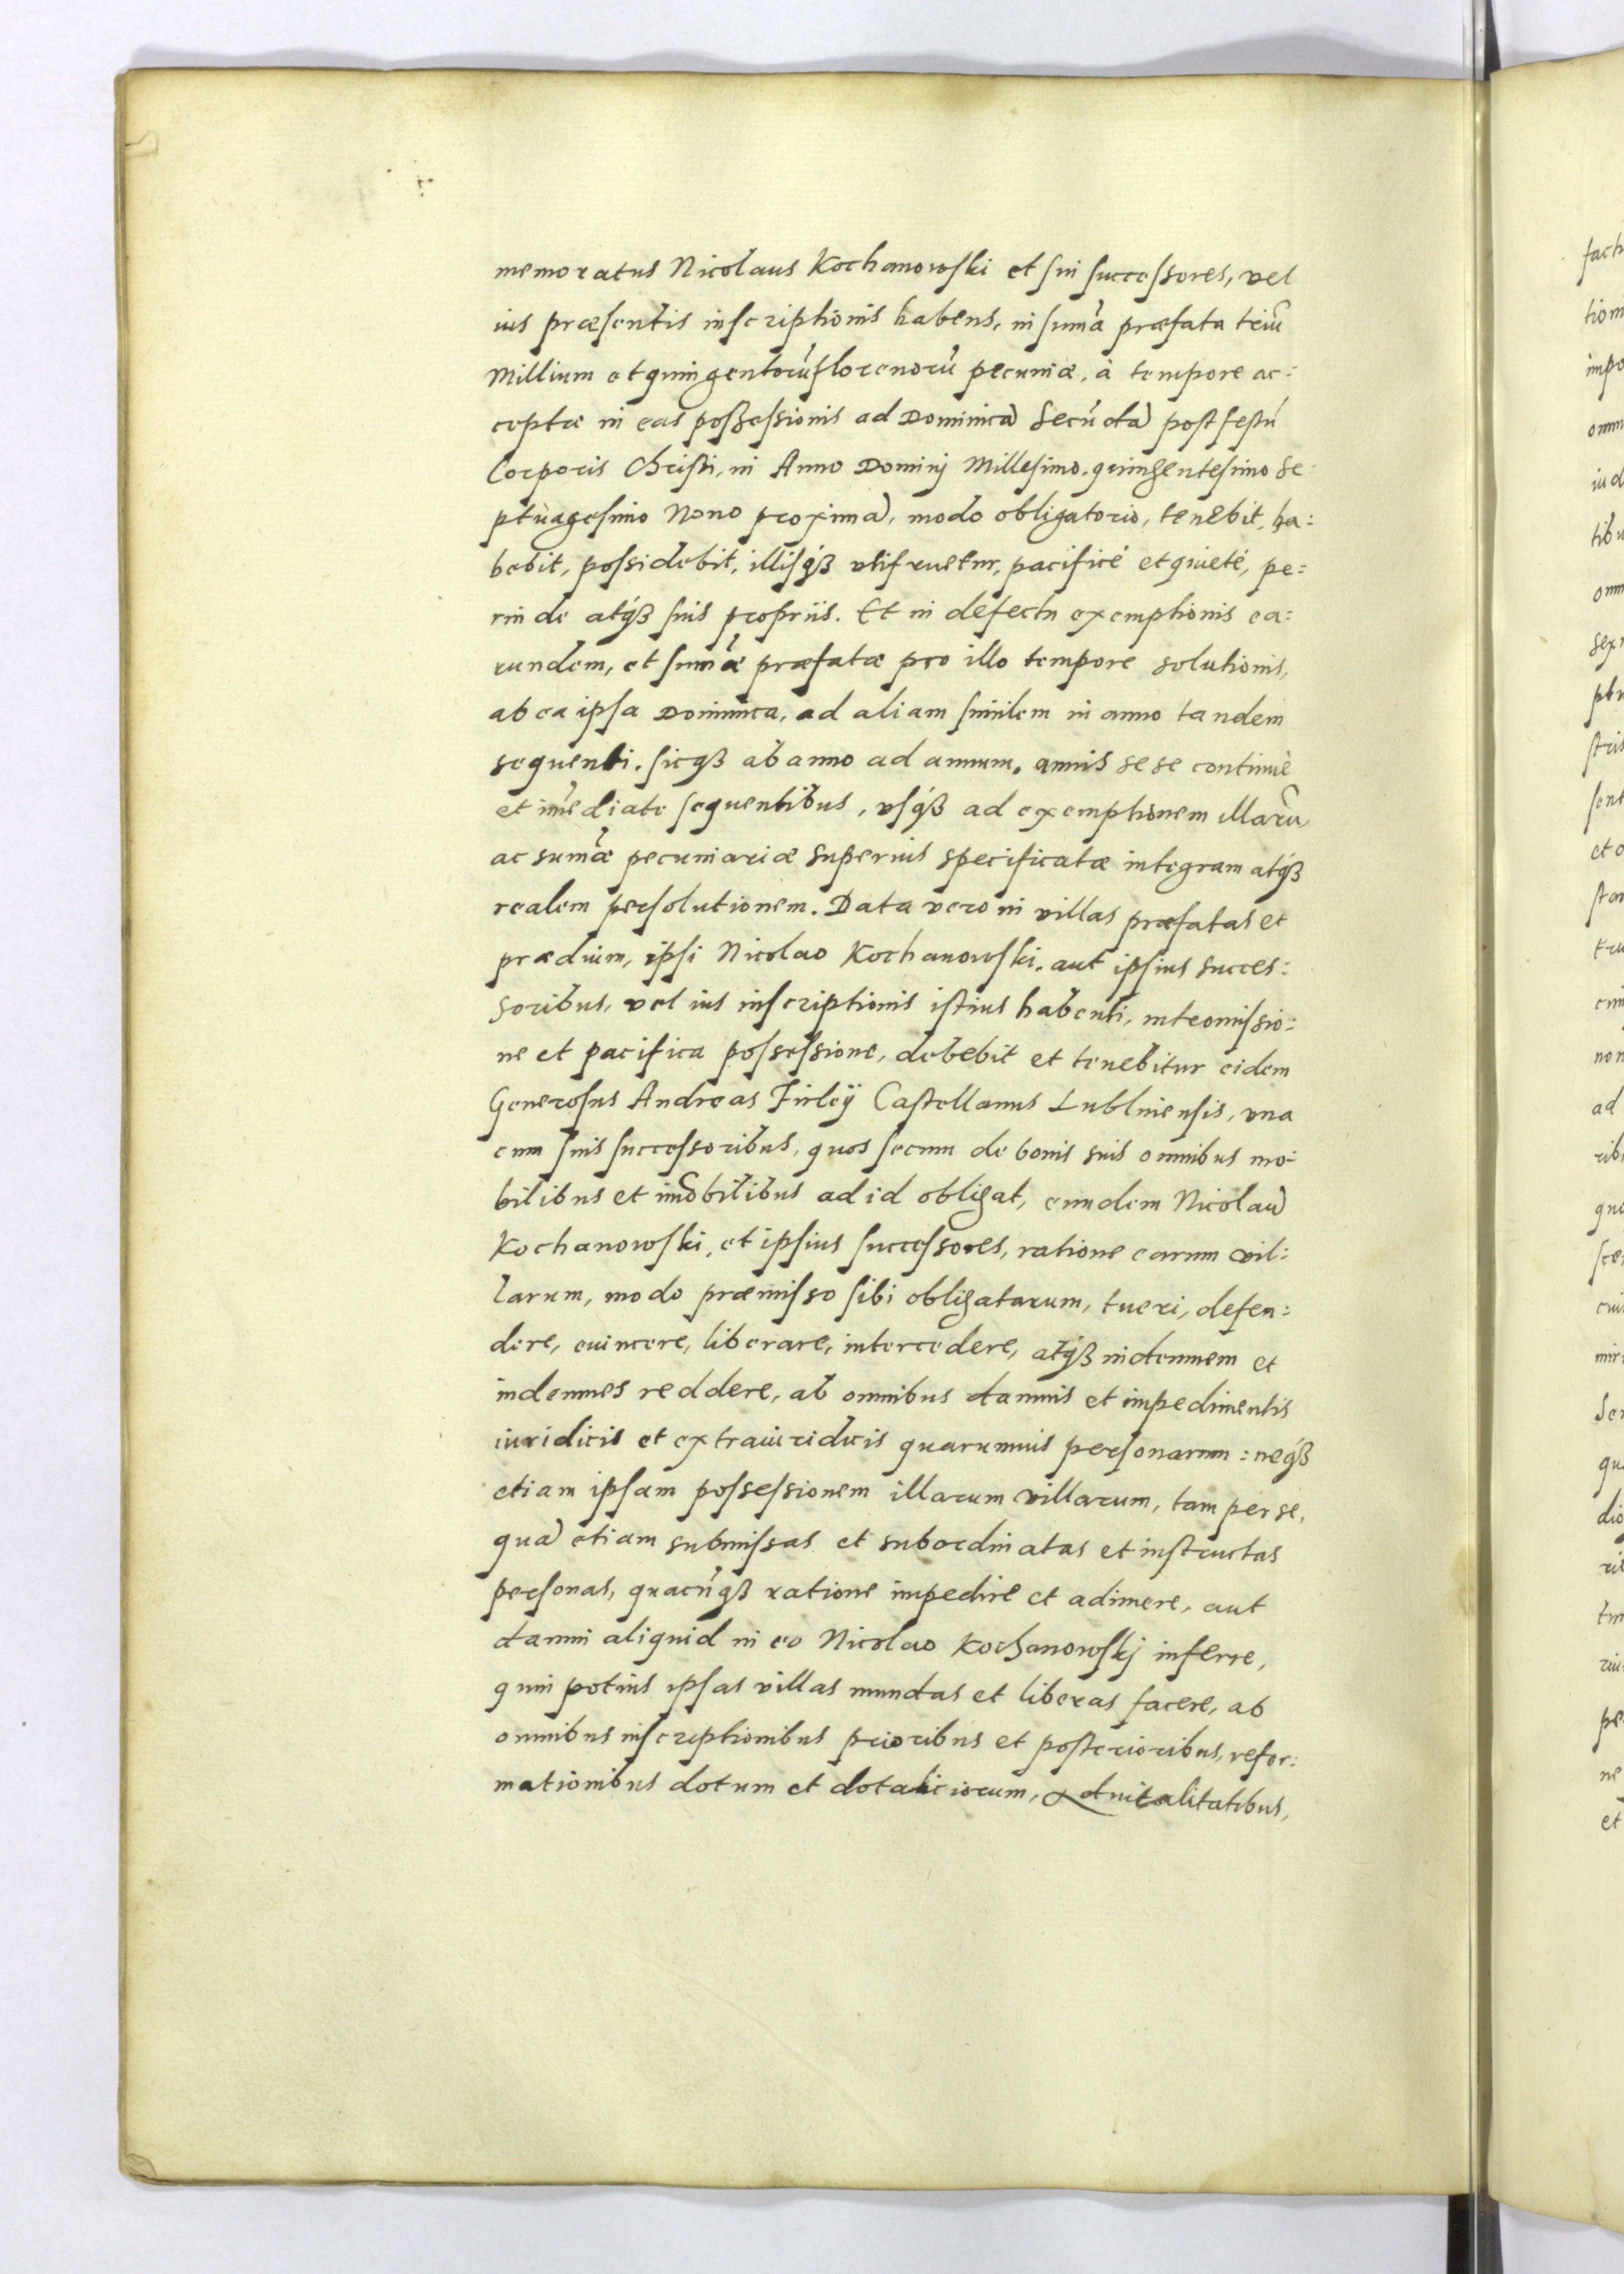 memoratus Nicolaus Kochanowski et sui successores, vel
ius præsentis inscriptionis habens, in sum̃a præfata triũ
Millium et quingentorũ florenorũ pecuniæ, à tempore ac:
ceptæ in eas possessionis ad Dominicã Secũdã post festũ
Corporis Christi, in Anno Dominj Millesimo, quingentesimo Se:
ptuagesimo Nono proximã, modo obligatorio, tenebit, ha:
bebit, possidebit, illisq́ꝫ utifruetur, pacificé et quieté, pe:
rinde atq́ꝫ suis propriis. Et in defectu exemptionis ea:
rundem, et sum̃æ præfatæ pro illo tempore solutionis,
ab ea ipsa Dominica, ad aliam similem in anno tandem
sequenti, sicqꝫ ab anno ad annum, annis sese continuè
et im̃ediate sequentibus, vsq́ꝫ ad exemptionem illarũ
ac sum̃æ pecuniariæ superius specificatæ integram atq́ꝫ
realem persolutionem. Data vero in villas præfatas et
prædium, ipsi Nicolao Kochanowski, aut ipsius succes:
soribus, vel ius inscriptionis istius habenti, intromissio:
ne et pacifica possessione, debebit et tenebitur eidem
Generosus Andreas Firleÿ Castellanus Lublinensis, vna
cum suis successoribus, quos secum de bonis suis omnibus mo:
bilibus et im̃obilibus ad id obligat, eundem Nicolaũ
Kochanowski, et ipsius successores, ratione earum vil:
larum, modo præmisso sibi obligatarum, tueri, defen:
dere, euincere, liberare, intercedere, atq́ꝫ indemnem et
indemnes reddere, ab omnibus damnis et impedimentis
iuridicis et extraiuridicis quarumuis personarum: neq́ꝫ
etiam ipsam possessionem illarum villarum, tam per se,
quã etiam submissas et subordinatas et instructas
personas, quacũqꝫ ratione impedire et adimere, aut
damni aliquid in eo Nicolao Kochanowskj inferre,
quin potius ipsas villas mundas et liberas facere, ab
omnibus inscriptionibus prioribus et posterioribus, refor:
mationibus dotum et dotaliciorum, & aduitalitatibus,